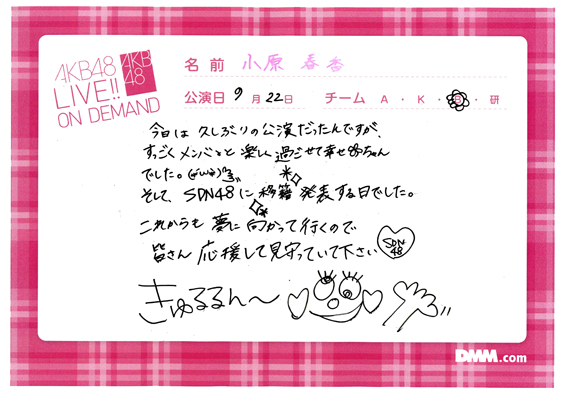 AKB48
LIVE!!
ON DEMAND
AKB
48
名前 小原 春香
公演日 9月22日 チーム A・K・B・研
今日は久しぶりの公演だったんですが、
すっごくメンバーと楽しく過ごせて幸せ
ちゃん
でした。
そして、SDN48に移籍発表する日でした。
これからも夢に向かって行くので
皆さん応援して見守っていて下さい
SDN
48
きゅるるん〜
DMM.com